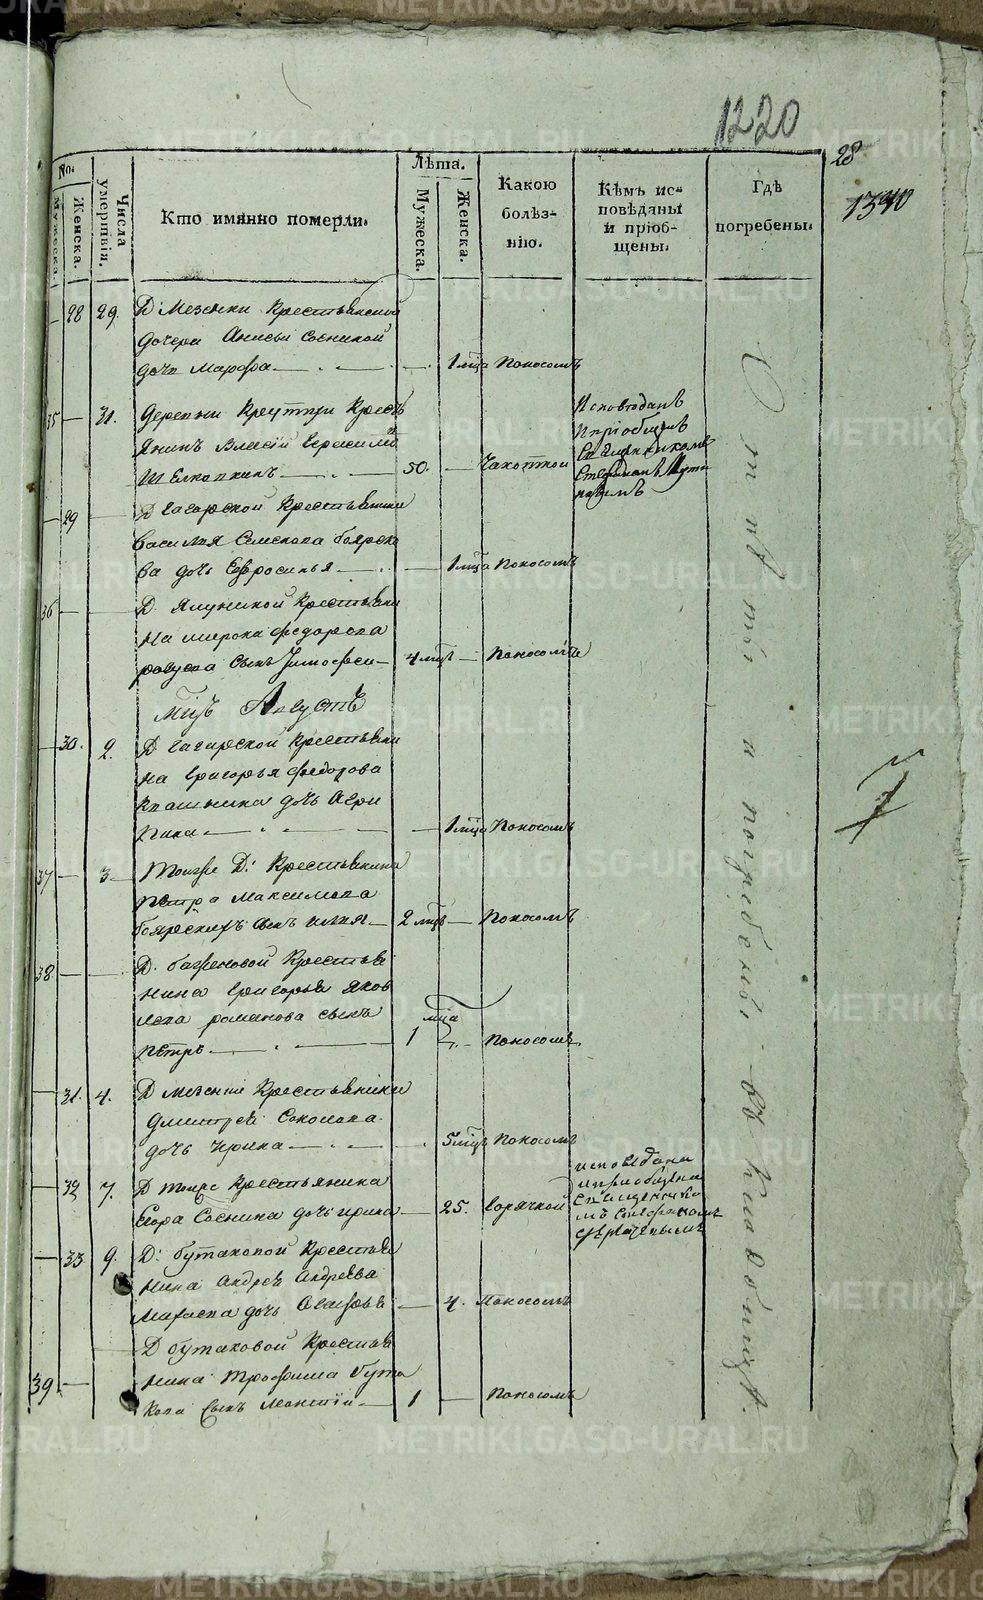 1220
28
1340
No.
Мужеска.
Женска.
Числа умертвія.
Кто имянно померли.
Лѣта.
Мужеска.
Женска.
Какою болѣз-
нію.
Кѣмъ ис-
повѣданы
и пріоб-
щены.
Гдѣ
погребены.
28 29. Д Мезенки Крестьянской
дочери Анисьи Сосниной
дочь Марфа 1 мца Поносомъ
35 31. деревни Кресть
янинъ Власій Герасимо
50. Чахоткой
Исповѣданъ
и пріобщенъ
Священникомъ
Стефаномъ
29 Д Гагарской Крестьянина
Василья Семенова боярска
ва дочь Евросинья 1 мца Поносомъ
36 Д Ялуниной Крестьяни
на мирона федорова
сынъ Тимофеи 4 мцъ Поносомъ
Мцъ Августъ
30. 2. Д Гагарской Крестьяни
на Григорья федорова
дочь Агри
пина 1 мца Поносомъ
37 3 Тояже Д: Крестьянина
петра Максимова
боярскихъ сынъ илья 2 мцъ Поносомъ
38. Д. баженовой Крестья
нина Григорья Яков
лева романова сынъ
петръ 1 мца Поносомъ
31. 4. Д мезенки Крестьянина
Дмитрея Соколова
дочь Ирина 5 мцъ Поносомъ
32 7. Д тояже Крестьянина
Егора Соснина дочь ирина 25. Горячкой
исповѣдана
и приобщена
Священнико
мъ Стефаномъ
33 9. Д: бутаковой Крестья
нина Андрея Андреева
дочь Агафья 4. Поносомъ
39 Д бутаковой Крестья
нина Трофима бута
кова сынъ Леонтій 1 Поносомъ
Отпѣты и погребены въ кладбищѣ.
METRIKI.GASO-URAL.RU